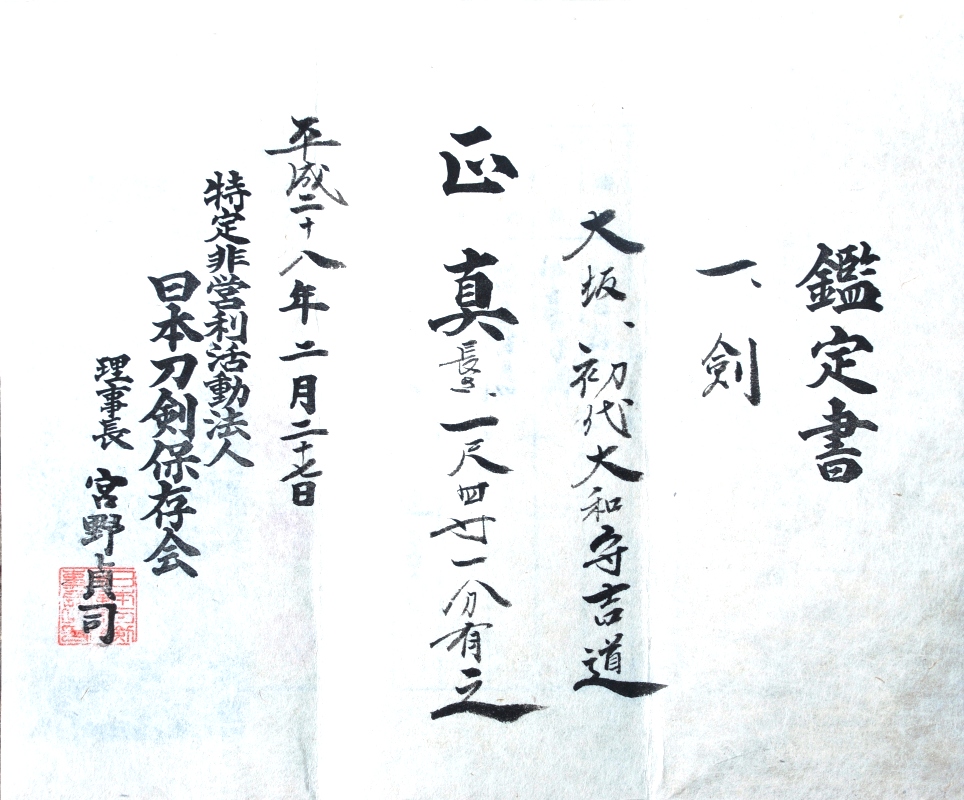 鑑定書
一、剣
大坂、初代大和守吉道
正真
長さ、一尺四寸一分有之
平成二十八年二月二十七日
特定非営利活動法人
日本刀剣保存会
理事長 宮野貞司